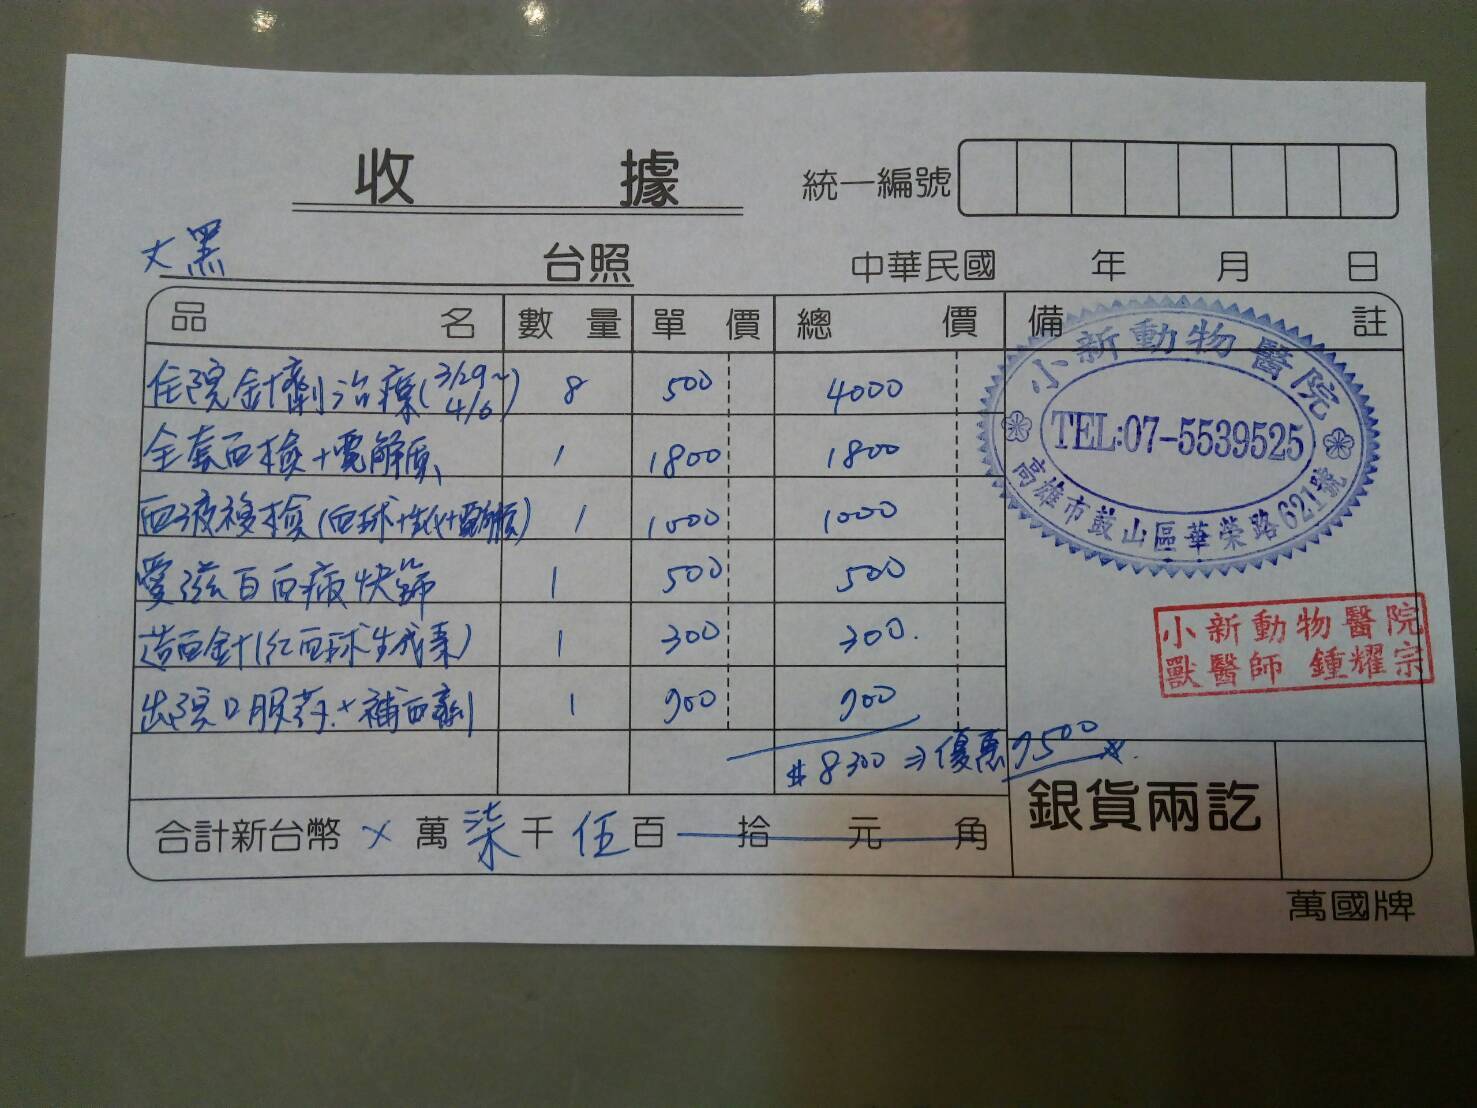 收據
統一編號
大黑 台照
中華民國 年 月 日
品名 數量 單價 總價 備註
住院針劑治療(3/29~4/6) 8 500 4000
全套血檢+電解質 1 1800 1800
血液複檢(血球+生化+電解質) 1 1000 1000
愛滋白血病快篩 1 500 500
造血針(紅血球生成素) 1 300 300.
出院口服药+補血劑 1 700 700
$8300⇒優惠7500
合計新台幣 × 萬 柒 千 伍 百 拾 元 角
銀貨兩訖
萬國牌
小新動物醫院
TEL:07-5539525
高雄市鼓山區華榮路621號
小新動物醫院
獸醫師 鍾耀宗